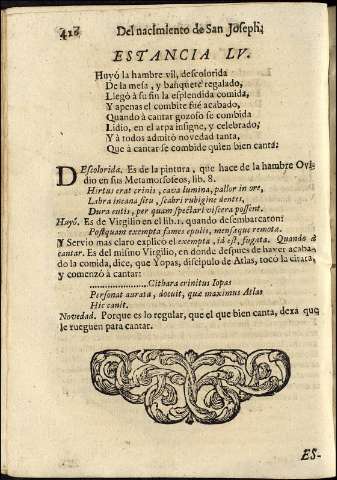 418 Del nacimiento de San Joseph;
ESTANCIA LV.
Huyó la hambre vil, descolorida
De la mesa, y banquete regalado,
Llegò à su fin la esplendida comida,
Y apenas el combite fué acabado,
Quando à cantar gozoso se combida
Lidio, en el arpa insigne, y celebrado;
Y à todos admitò novedad tanta,
Que à cantar se combide quien bien canta.
DEscolorida. Es de la pintura, que hace de la hambre Ovi-
dio en sus Metamorfoseos, lib. 8.
Hirtus erat crinis, cava lumina, pallor in ore,
Labra incana situ, scabri rubigine dentes,
Dura cutis, per quam spectari viscera possent.
Huyó. Es de Virgilio en el lib.1. quando desembarcaton:
Postquam exempta fames epulis, mensaque remota.
Y Servio mas claro explicó el exempta, id est, fugata. Quando à
cantar. Es del mismo Virgilio, en donde despues de haver acaba-
do la comida, dice, que Yopas, discipulo de Atlas, tocó la citara,
y comenzó à cantar:
........................Cithara crinitus Iopas
Personat aurata, docuit, quæ maximus Atlas
Hic canit.
Novedad. Porque es lo regular, que el que bien canta, dexa que
le rueguen para cantar.
ES-